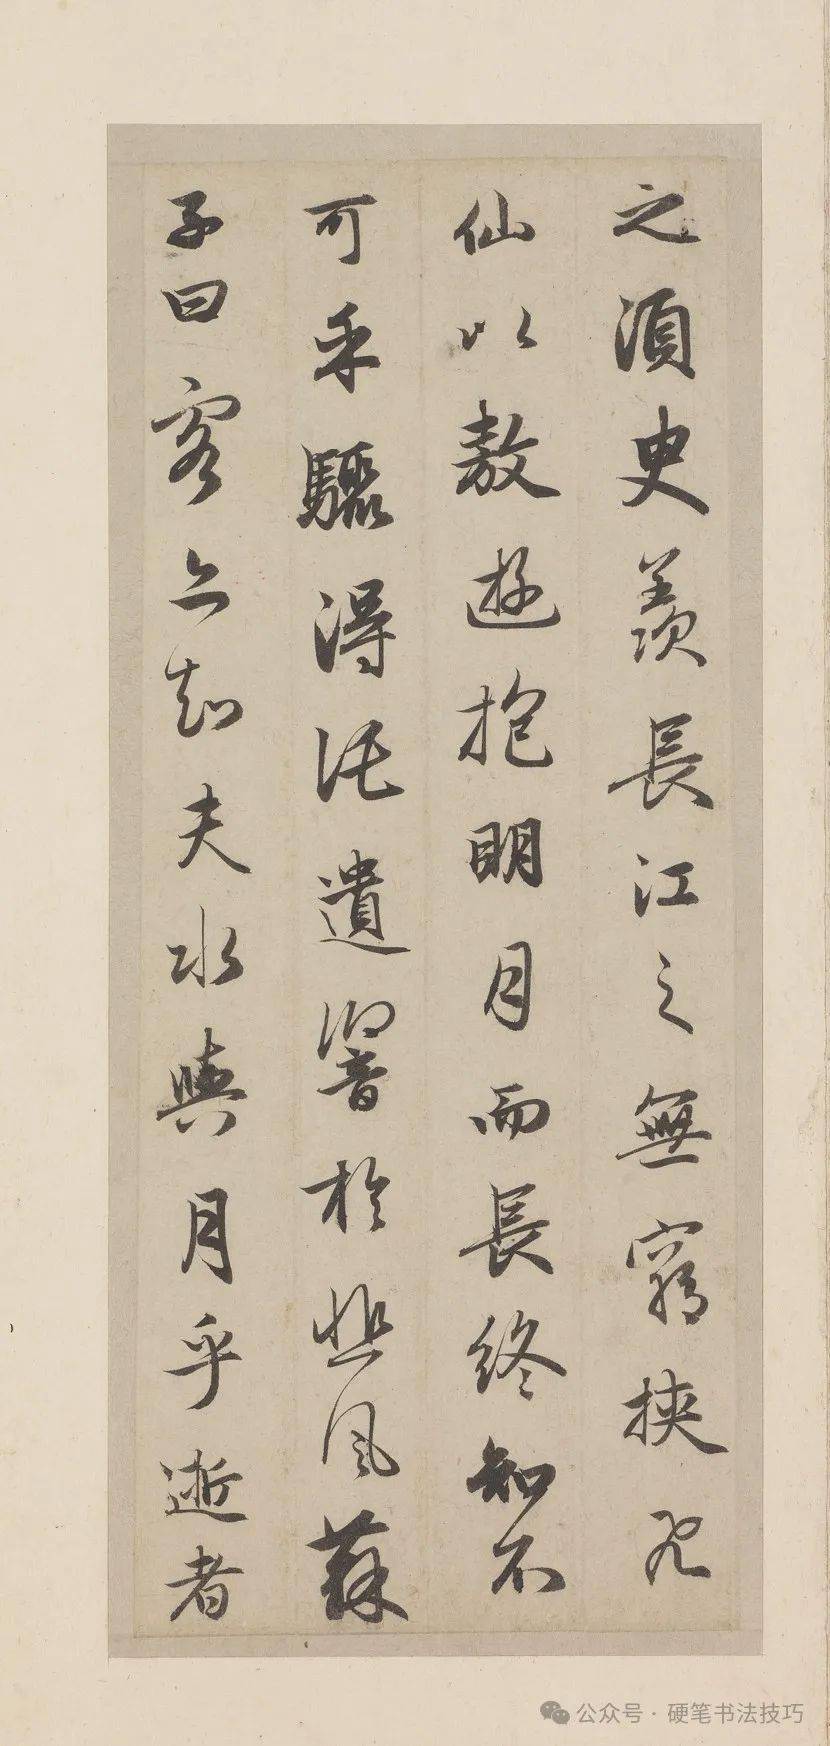 之須臾羨長江之無窮挾飛
仙以敖遊抱明月而長終知不
可乎驟得託遺響於悲風蘇
子曰客亦知夫水與月乎逝者
公众号·硬笔书法技巧